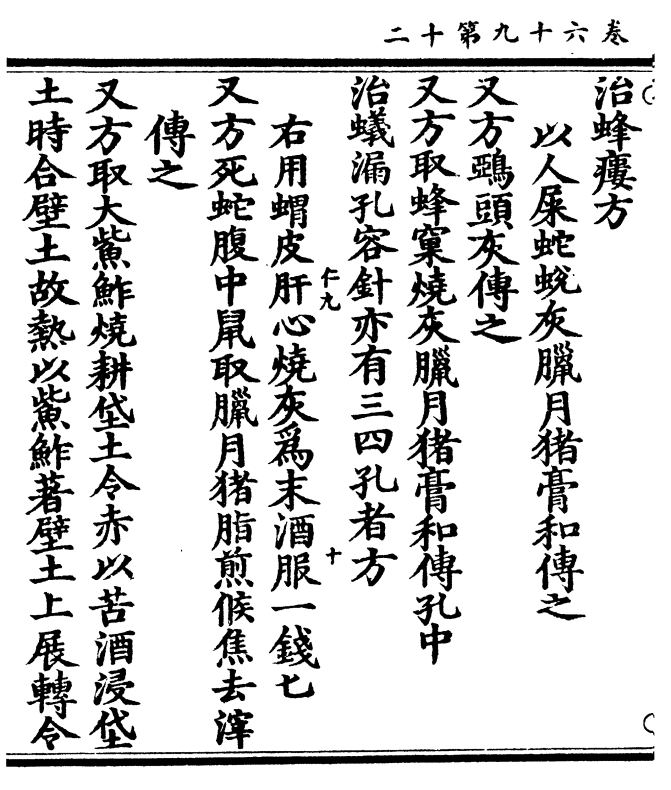 卷六十九第十二
治蜂瘻方
以人屎蛇蛻灰臘月猪膏和傳之
又方鵄頭灰傳之
又方取蜂窠燒灰臘月猪膏和傳孔中
治蟻漏孔容針亦有三四孔者方
仁九 十
右用蝟皮肝心燒灰爲末酒服一錢匕
又方死蛇腹中鼠取臘月猪脂煎候焦去滓
傳之
又方取大鮆鮓燒耕垡土令赤以苦酒浸垡
土時合壁土故熱以鮆鮓著壁土上展轉令